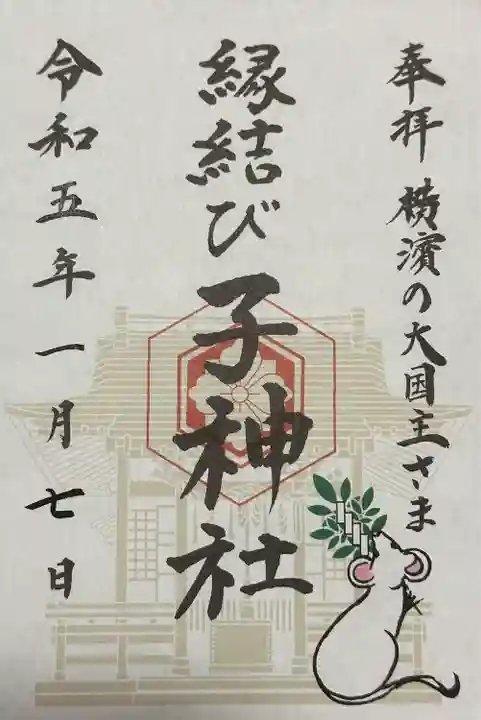 奉拝 横濱の大国主さま
縁結び 子神社
令和五年一月七日